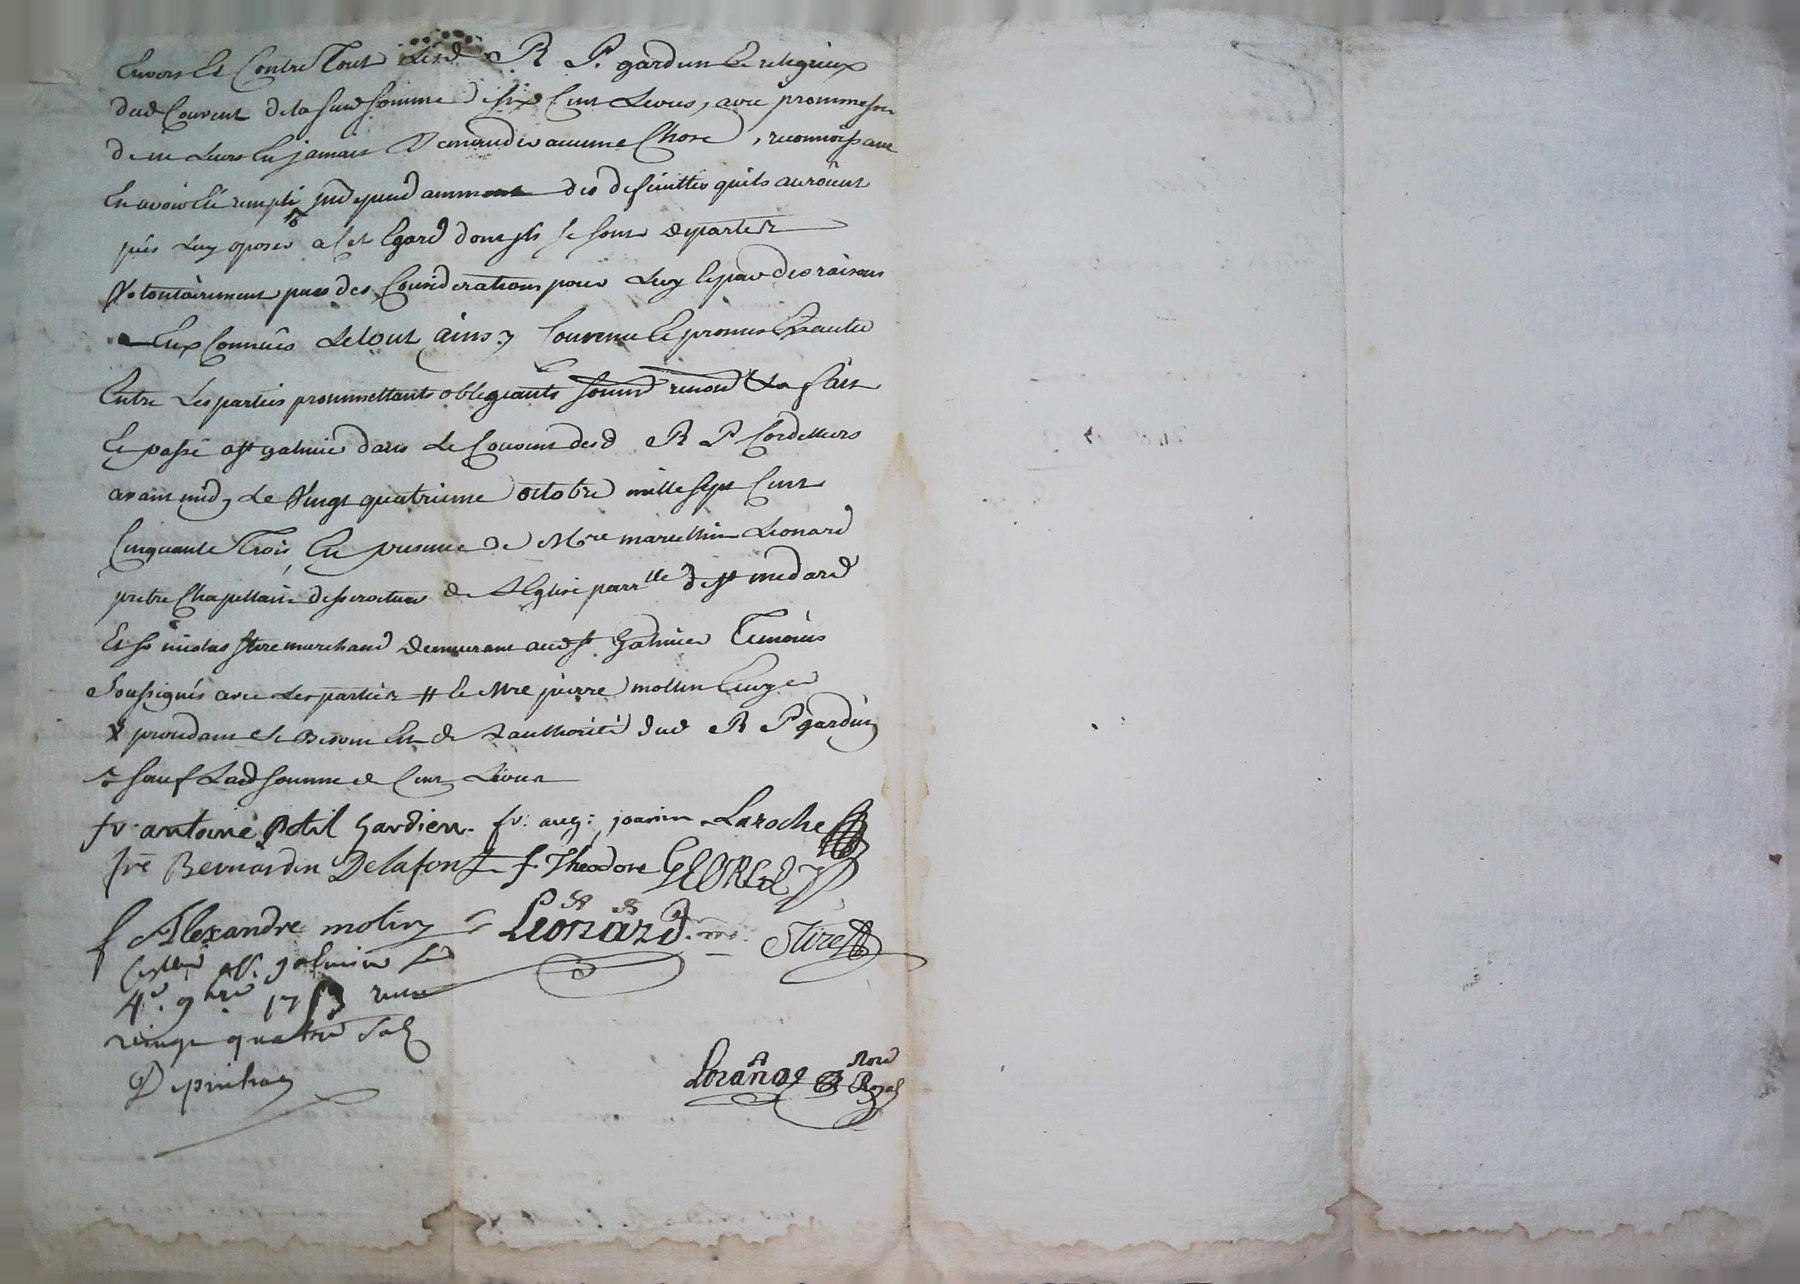 Envers Et Contre Tout Lesd R P. gardien Et religieux
dud Couvent de la susd somme de six Cent Livres, avec prommesse
de ne Leurs En jamais Demander aucune Chose, reconnoissant
En avoir Eté rempli independamment des defenittes quils auroient
pûs Luy oposer a Cet Egard dont ils se sont departie
Volontairement par des Considerations pour Luy Et par des raisons
a Eux Connües Le tout ainsy Convenu Et promis Executer
Entre Les parties prommettants obligeants soumt renonct &a fait
Et passé a st galmier dans Le Couvent desd R P Cordelliers
avant midy Le Vingt quatrieme octobre mille sept Cent
Cinquante Trois, En presence de Mre marcellin Leonard
pretre Chapellain desserviteur de L'Eglise parrlle de st medard
Et sr nicolas Stire marchand demeurant aud st Galmier Temoins
Soussignés avec Les parties # Et Mre pierre mollin
procedant de L'authorité dud R P gardien
sauf Lad somme de Cent Livres
fr. antoine petil Gardien. fr. aug: joanin Laroche
fre Bernardin Delafont f. Theodore GEORGE
f Alexandre molin Leonard. Stire
Conllé a st. galmier Le
4e. 9bre 1753 recu
vingt quatre sols
Depruhas
Lorange Nore Royal